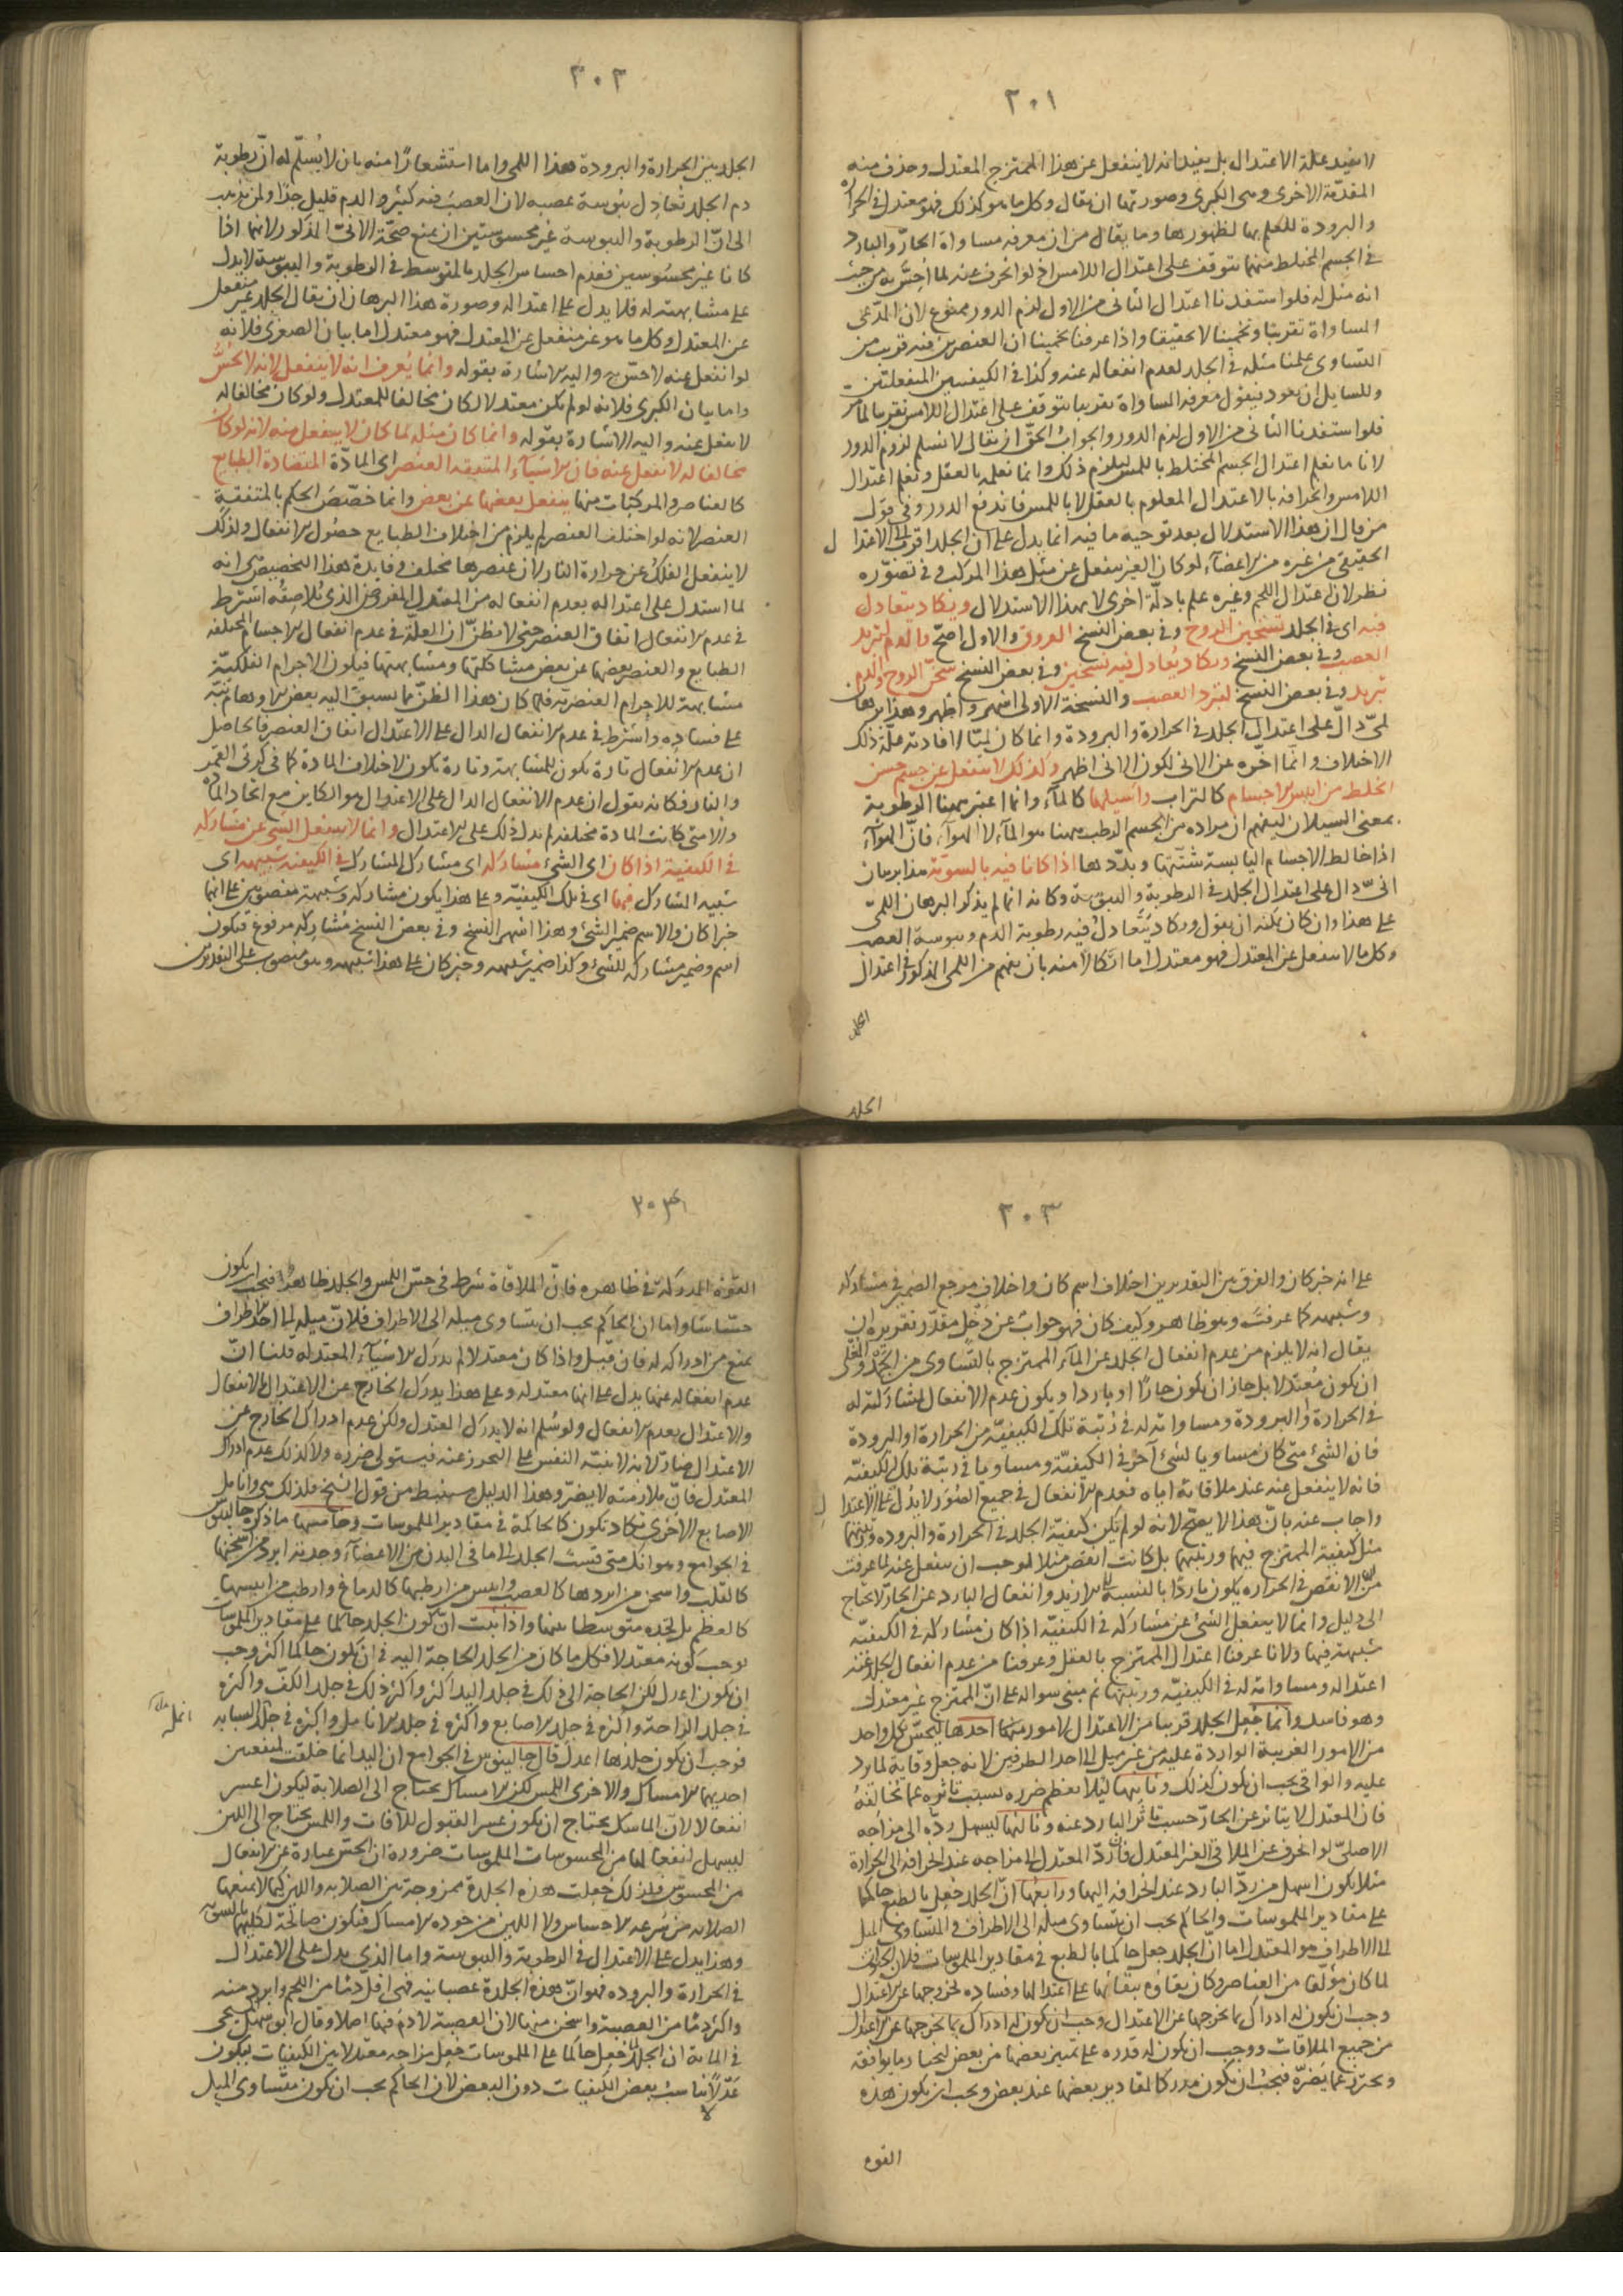 ٣٠١
لا يفيد علة الاعتدال بل يفيد انه لا ينفعل عن هذا الممتزج المعتدل وحذف منه
المقدّمة الاخرى وهى الكبرى وصورتها ان يقال وكل ما هو كذلك فهو معتدل فى الحرارة
والبرودة للعلم بها لظهورها وما يقال من ان معرفة مساواة الحارّ والبارد
فى الجسم المختلط منهما يتوقف على اعتدال اللامس اذ لو انحرف عنه لما احسّ به من حيث
انه مثل له فلو استفدنا اعتدال الثانى من الاول لزم الدور ممنوع لان المدّعى
المساواة تقريبا وتخمينا لا تحقيقا واذا عرفنا تخمينا ان العنصرين فيه قريب من
التساوى علمنا مثله فى الجلد لعدم انفعاله عنه وكذا فى الكيفيتين المنفعلتين
وللسايل ان يعود فيقول معرفة المساواة تقريبا يتوقف على اعتدال اللامس تقريبا لما مر
فلو استفدنا الثانى من الاول لزم الدور والجواب الحقّ ان يقال لا نسلم لزوم الدور
لانا ما نعلم اعتدال الجسم المختلط باللمس ليلزم ذلك وانما نعلمه بالعقل ونعلم اعتدال
اللامس وانحرافه بالاعتدال المعلوم بالعقل لا باللمس فاندفع الدور وفى قول
من قال ان هذا الاستدلال بعد توجيه ما فيه انما يدل على ان الجلد اقرب الى الاعتدال
الحقيقى من غيره من الاعضاء لو كان الغير ينفعل عن مثل هذا المركب وفى تصوّره
نظر لان اعتدال اللحم وغيره علم بادلّة اخرى لا بهذا الاستدلال ويكاد يتعادل
فيه اى فى الجلد تسخين الروح وفى بعض النسخ العروق والاول اصحّ والدم لتبريد
العصب وفى بعض النسخ ويكاد يُعادل فيه تسخين وفى بعض النسخ سخن الروح والدم
تبريد وفى بعض النسخ لبرد العصب والنسخة الاولى اشهر واظهر وهذا برهان
لمّى دالّ على اعتدال الجلد فى الحرارة والبرودة وانما كان لميّا لافادته علّة ذلك
الاختلاف وانما اخّره عن الانى لكون الانى اظهر وكذلك لا ينفعل عن جسم حسن
الخلط من ايبس الاجسام كالتراب واسيلها كالماء وانما اعتبر ههنا الرطوبة
بمعنى السيلان ليفهم ان مراده من الجسم الرطب ههنا هو الماء لا الهواء فانّ الهواء
اذا خالط الاجسام اليابسة شتّتها وبدّدها اذا كانا فيه بالسويّة هذا برهان
انىّ دال على اعتدال الجلد فى الرطوبة واليبوسة وكانه انما لم يذكر البرهان اللمىّ
على هذا وان كان يمكنه ان يقول ويكاد يتعادل فيه رطوبة الدم ويبوسة العصب
وكل ما لا ينفعل عن المعتدل فهو معتدل اما اتّكالا منه بان يفهم من اللمى المذكور فى اعتدال
الجلد
الجلد
٣٠٢
الجلد بين الحرارة والبرودة هذا اللمى واما استشعارًا منه بان لا يُسلّم له انّ رطوبة
دم الجلد تُعادِل يبُوسة عصبه لان العصَبَ فيه كثير والدم قليل جدّا ولمن يذهب
الى انّ الرطوبة واليبوسة غير محسوستين ان يمنع صحّة الانىّ المذكور لانهما اذا
كانا غير محسُوسين فعدم احساس الجلد بالمتوسط فى الرطوبة واليبوسة لا يدل
على مشابهته له فلا يدل على اعتداله وصورة هذا البرهان ان يقال الجلد غير منفعل
عن المعتدل وكل ما هو غير منفعل عن المعتدل فهو معتدل اما بيان الصغرى فلانه
لو انفعل عنه لاحسّ به واليه الاشارة بقوله وانما يُعرف انه لا ينفعل لانه لا يُحسّ
واما بيان الكبرى فلانه لو لم يكن معتدلا لكان مخالفا للمعتدل ولو كان مخالفا له
لانفعل عنه واليه الاشارة بقوله وانما كان مثله لما كان لا ينفعل منه لانه لو كان
مخالفا له لانفعل عنه فان الاشياء المتفقة العنصر اى المادّة المتضادة الطبايع
كالعناصر والمركبات منها ينفعل بعضها عن بعض وانما خصّصَ الحكم بالمتفقة
العنصر لانه لو اختلف العنصر لم يلزم من اختلاف الطبايع حصُول الانفعال ولذلك
لا ينفعل الفلك عن حرارة النار لان عنصرها مختلف وفايدة هذا التخصيص انه
لما استدل على اعتداله بعدم انفعاله من المعتدل المفروض الذى يُلاصقُه اشترط
فى عدم الانفعال اتفاق العنصر حتى لا يظنّ ان العلة فى عدم انفعال الاجسام المختلفة
الطبايع والعنصر بعضها عن بعض مشاكلتها ومشابهتها فيكون الاجرام الفلكيّة
مشابهة للاجرام العنصرية فلما كان هذا الظنّ مما يسبق اليه بعض الاوهام نبّه
على فساده واشترط فى عدم الانفعال الدال على الاعتدال اتفاق العنصر فالحاصل
ان عدم الانفعال تارة يكون للمشابهة وتارة يكون لاختلاف المادة كما فى كرتى القمر
والنار فكانه يقول ان عدم الانفعال الدال على الاعتدال هو الكاين مع اتحاد المادة
والا متى كانت المادة مختلفة لم يدل ذلك على الاعتدال وانما لا ينفعل الشىء عن مشاركه
فى الكيفية اذا كان اى الشئ مشاركه اى مشارك المشارك فى الكيفية شبيهه اى
شبيه المشارك فيها اى فى تلك الكيفيّة وعلى هذا يكون مشاركه وشبيهه منصوبين على انهما
خبرا كان والاسم ضمير الشئ وهذا اشهر النسخ وفى بعض النسخ مشاركُه مرفوع فتكون
اسم وضمير مشاركه للشئ وكذا ضمير شبيهه وخبر كان على هذا شبيهه وهو منصوب على التقديرين
٣٠٣
على انه خبر كان والفرق بين التقديرين اختلاف اسم كان واختلاف مرجع الضمير فى مشاركه
وشبيهه كما عرفتَ وهو ظاهر وكيف كان فهو جواب عن دخل مقدّر تقريره ان
يقال انه لا يلزم من عدم انفعال الجلد عن الماء الممتزج بالتّساوى من الجَمْد والمُغلى
ان يكون مُعتدلا بل جاز ان يكون حارّا او باردا ويكون عدم الانفعال لمشاركته له
فى الحرارة والبرودة ومساواته له فى رُتبة تلك الكيفيّة من الحرارة او البرودة
فان الشئ متى كان مساويا لشئ آخر فى الكيفيّة ومساويا فى رتبة تلك الكيفيّة
فانه لا ينفعل عنه عند ملاقاته اياه فعدم الانفعال فى جميع الصُور لا يدُل على الاعتدال
واجاب عنه بانّ هذا لا يصحّ لانه لو لم تكن كيفيّة الجلد فى الحرارة والبروده ورتبتهما
مثل كيفية الممتزج فيهما ورتبتهما بل كانت انقص مثلا لوجب ان ينفعل عنه لما عرفت
منّ الانقص فى الحراره يكون باردًا بالنسبة الى الازيد وانفعال البارد عن الحارّ لا يحتاج
الى دليل وانما لا ينفعل الشئ عن مشاركه فى الكيفيّة اذا كان مشاركه فى الكيفيّة
شبيهه فيها ولانا عرفنا اعتدال الممتزج بالعقل وعرفنا من عدم انفعال الجلد عنه
اعتداله ومساواته له فى الكيفيّة ورتبتها ثم مبنى سواله على انّ الممتزج غير معتدل
وهو فاسد وانما جُعل الجلد قريبا من الاعتدال لامور منها احدها ليحسّ بكل واحد
من الامور الغريبة الواردة عليه من غير ميل الى احد الطرفين لانه جعل وقاية لما يرد
عليه والواقى يجب ان يكون كذلك وثانيها ليلا يعظم ضرره بسبب تاثره عما يخالفهُ
فان المعتدل لا يتاثر عن الحارّ حسب تاثر البارد عنه وثالثها ليسهل ردّه الى مزاجه
الاصلىّ لو انحرف عن الملاقى الغير المعتدل فان ردّ المعتدل الى مزاجه عند انحرافه الى الحرارة
مثلا يكون اسهل من ردّ البارد عند انحرافه اليها ورابعُها انّ الجلد جعل بالطبع حاكما
على مقادير الملموسات والحاكم يجب ان يتساوى ميله الى الاطراف والمتساوى الميل
الى الاطراف هو المعتدل اما انّ الجلد جعل حاكما بالطبع فى مقادير الملموسات فلان الحيوان
لما كان مؤلّفا من العناصر وكان بقاؤه ببقائها على اعتدالها وفساده بخروجها عن الاعتدال
وجب ان يكون له ادراك بما يخرجها عن الاعتدال وجب ان يكون له ادراك بما يخرجها عن الاعتدال
من جميع الملاقات ووجب ان يكون له قدره على تمييز بعضها من بعض ليختار ما يوافقه
ويحترز عما يضرّه فيجب ان يكون مدركا لمقادير بعضها عند بعض ويجب ان يكون هذه
القوه
٣٠٤
القوّة المدركة فى ظاهره فانّ الملاقاة شرط فى حسّ اللمس والجلد ظاهر فيجب ان يكون
حسّاسًا واما ان الحاكم يجب ان يتساوى ميله الى الاطراف فلانّ ميله الى احد الاطراف
يمنع من ادراكه له فان قيل واذا كان معتدلا لم يدرك الاشياء المعتدلة قلنا انّ
عدم انفعاله عنها يدل على انها معتدلة وعلى هذا يدرك الخارج عن الاعتدال بالانفعال
والاعتدال بعدم الانفعال ولو سُلم انه لا يدرك المعتدل ولكن عدم ادراك الخارج عن
الاعتدال ضارّ لانه لا تنبّه النفس على التحرز عنه فيستولى ضرره ولا كذلك عدم ادراك
المعتدل فانّ ملازمته لا يضرّ وهذا الدليل مستنبط من قول الشيخ فلذلك هى وانامل
الاصابع الاخرى تكاد تكون كالحاكمة فى مقادير الملموسات وخامسها ما ذكره جالينوس
فى الجوامع وهو انك متى قست الجلد الى ما فى البدن من الاعضاء وجدته ابرد من اسخنها
كالقلب واسخن من ابردها كالعصب وايبس من ارطبها كالدماغ وارطب من ايبسها
كالعظم بل تجده متوسطا بينها واذا ثبت انّ كون الجلد حاكما على مقادير الملموسات
يوجب كونه معتدلا فكل ما كان من الجلد الحاجة اليه فى ان يكون حاكما اكثر وجب
ان يكون اعدل لكن الحاجة الى ذلك فى جلد اليد اكثر واكثر ذلك فى جلد الكفّ واكثره
فى جلد الراحة واكثره فى جلد الاصابع واكثره فى جلد الانامل واكثره فى جلد انملة السبابة
فوجب ان يكون جلدها اعدل قال جالينوس فى الجوامع ان اليد انما خلقت لمنفعتين
احديهما الامساك والاخرى اللمس لكن الامساك يحتاج الى الصلابة ليكون اعسر
انفعالا لانّ الماسك يحتاج ان يكون عسر القبول للافات واللمس يحتاج الى اللين
ليسهل انفعالها من المحسوسات الملموسات ضرورة ان الحسّ عبارة عن الانفعال
من المحسوس فلذلك جعلت هذه الجلدة ممزوجة بين الصلابه واللين كيلا يمنعها
الصلابه من سُرعه الاحساس ولا اللين من جوده الامساك فتكون صالحة لكليهما بالسويّة
وهذا يدل على الاعتدال فى الرطوبة واليبوسة واما الذي يدل على الاعتدال
فى الحرارة والبروده فهو انّ هذه الجلدة عصبانيه فهى اقل دمًا من اللحم وابرد منه
واكثر دمًا من العصبة واسخن منها لان العصبة لا دم فيها اصلا وقال ابو سهل المسيحى
فى المايه ان الجلد جُعل حاكما على الملموسات فجُعل مزاجه معتدلا بين الكيفيات فيكون
عَدْلا لا يناسب بعض الكيفيات دون البعض لان الحاكم يجب ان يكون متساوي الميل